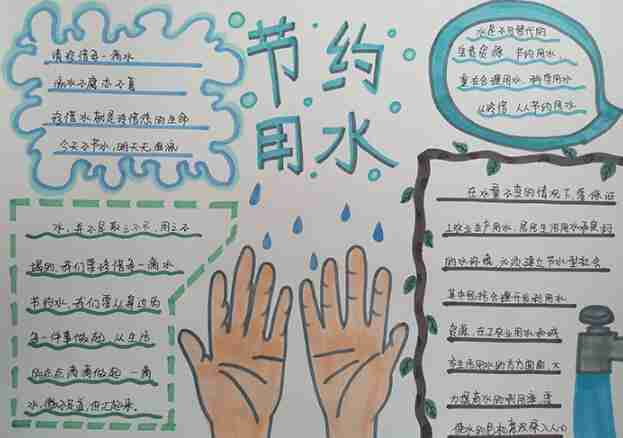 节约
用水
请珍惜每一滴水
滴水不腐
珍惜水就是珍惜您的生命
今天不节水,明天无
水是不可替代的
宝贵资源 节约用水
重在合理用水 科学用水
从 人人节约用水
水,并不是取之不尽,用之不
竭的,我们要珍惜每一滴水
节约水,我们要从身边的
每一件事做起,从生活
的点点滴滴做起 一滴
水,微不足道,但
在水量不变的情况下,要保证
工农业生产用水,居民生活用水
的水 必须建立节水型社会
其中包括合理开发利用水
资源,在工农业用水和城
市生活用水的方方面面,大
力提高水的利用率,要
使水的 深入人心